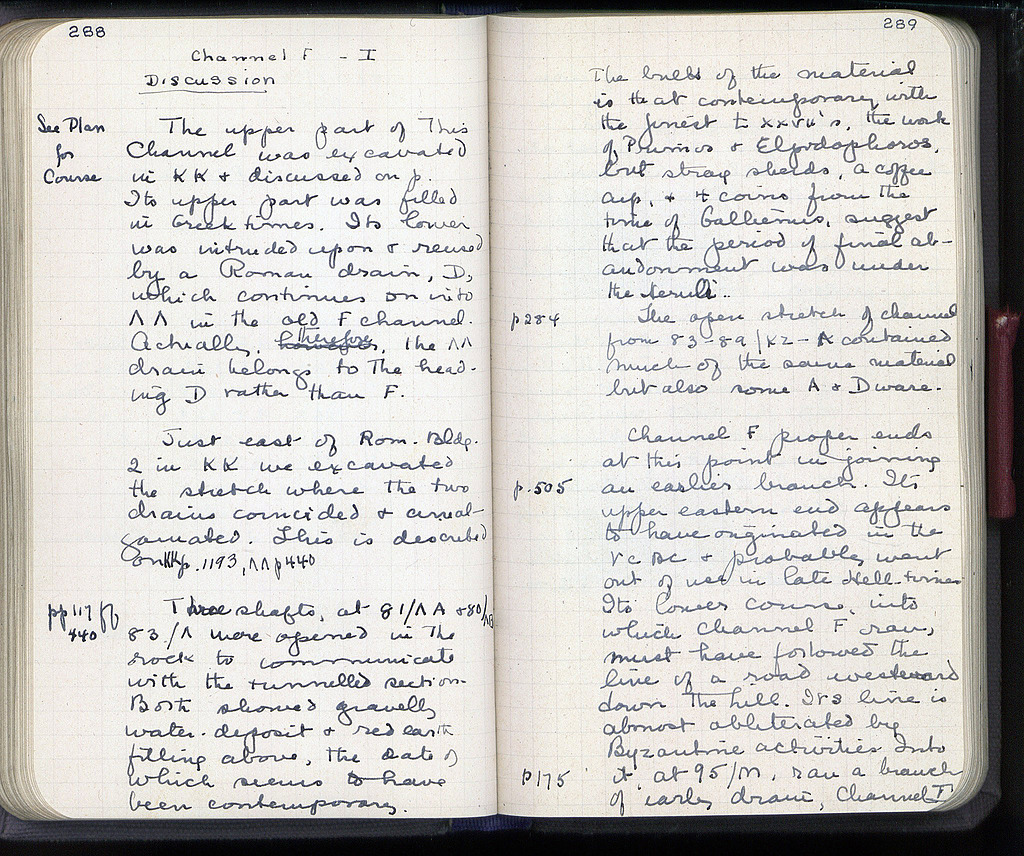 288
Channel F - I
Discussion
See Plan
for
Course
The upper part of This
Channel was excavated
in KK & discussed on p.
Its upper part was filled
in Greek times. Its lower
was intruded upon & reused
by a Roman drain, D,
which continues on into
ΛΛ in the old F channel.
Actually, therefore, the ΛΛ
drain belongs to the head-
ing D rather than F.
Just east of Rom. Bldg.
2 in KK we excavated
the stretch where the two
drains coincided & amal-
gamated. This is described
on KK p. 1193, ΛΛ p 440
pp 117 ff
440
Three shafts, at 81/ΛA & 80/ΛB
83/Λ were opened in the
rock to communicate
with the tunnelled section.
Both showed gravelly
water-deposit & red earth
filling above, the date of
which seems to have
been contemporary.
289
The bulk of the material
is that contemporary with
the finest to XXVII's, the work
of Preimos & Elpidephoros,
but stray sherds, a coffee
cup, & 4 coins from the
time of Gallienus, suggest
that the period of final ab-
andonment was under
the Heruli..
p 284
The open stretch of channel
from 83-89/KZ-Λ contained
much of the same material
but also some A & D ware.
Channel F proper ends
at this point in joining
p. 505
an earlier branch. Its
upper eastern end appears
to have originated in the
V c BC & probably went
out of use in late Hell. times
Its lower course, into
which Channel F ran,
must have followed the
line of a road westward
down The hill. Its line is
almost obliterated by
Byzantine activities. Into
p 175
it, at 95/M, ran a branch
of early drain, Channel T